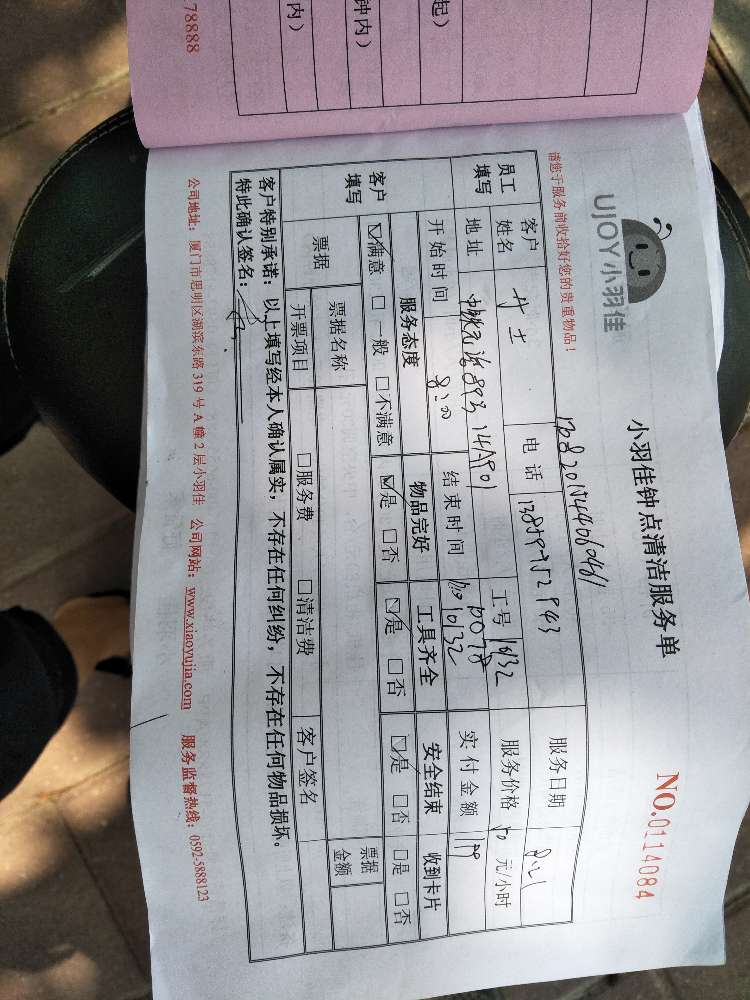 起）
钟内）
内）
78888
UJOY小羽佳
小羽佳钟点清洁服务单
NO.0114084
请您于服务前收拾好您的贵重物品！
员工填写
客户姓名
女士
电话
服务日期
8.21
地址
工号
10132
服务价格
50 元/小时
开始时间
8:00
结束时间
实付金额
客户填写
服务态度
物品完好
工具齐全
安全结束
收到卡片
☑满意 □一般 □不满意
☑是 □否
☑是 □否
☑是 □否
□是 □否
票据
票据名称
票据金额
开票项目
□服务费 □清洁费
客户签名
客户特别承诺：以上填写经本人确认属实，不存在任何纠纷，不存在任何物品损坏。
特此确认签名：
公司地址：厦门市思明区湖滨东路 319 号 A 幢 2 层小羽佳 公司网站：www.xiaoyujia.com 服务监督热线：0592-5888123